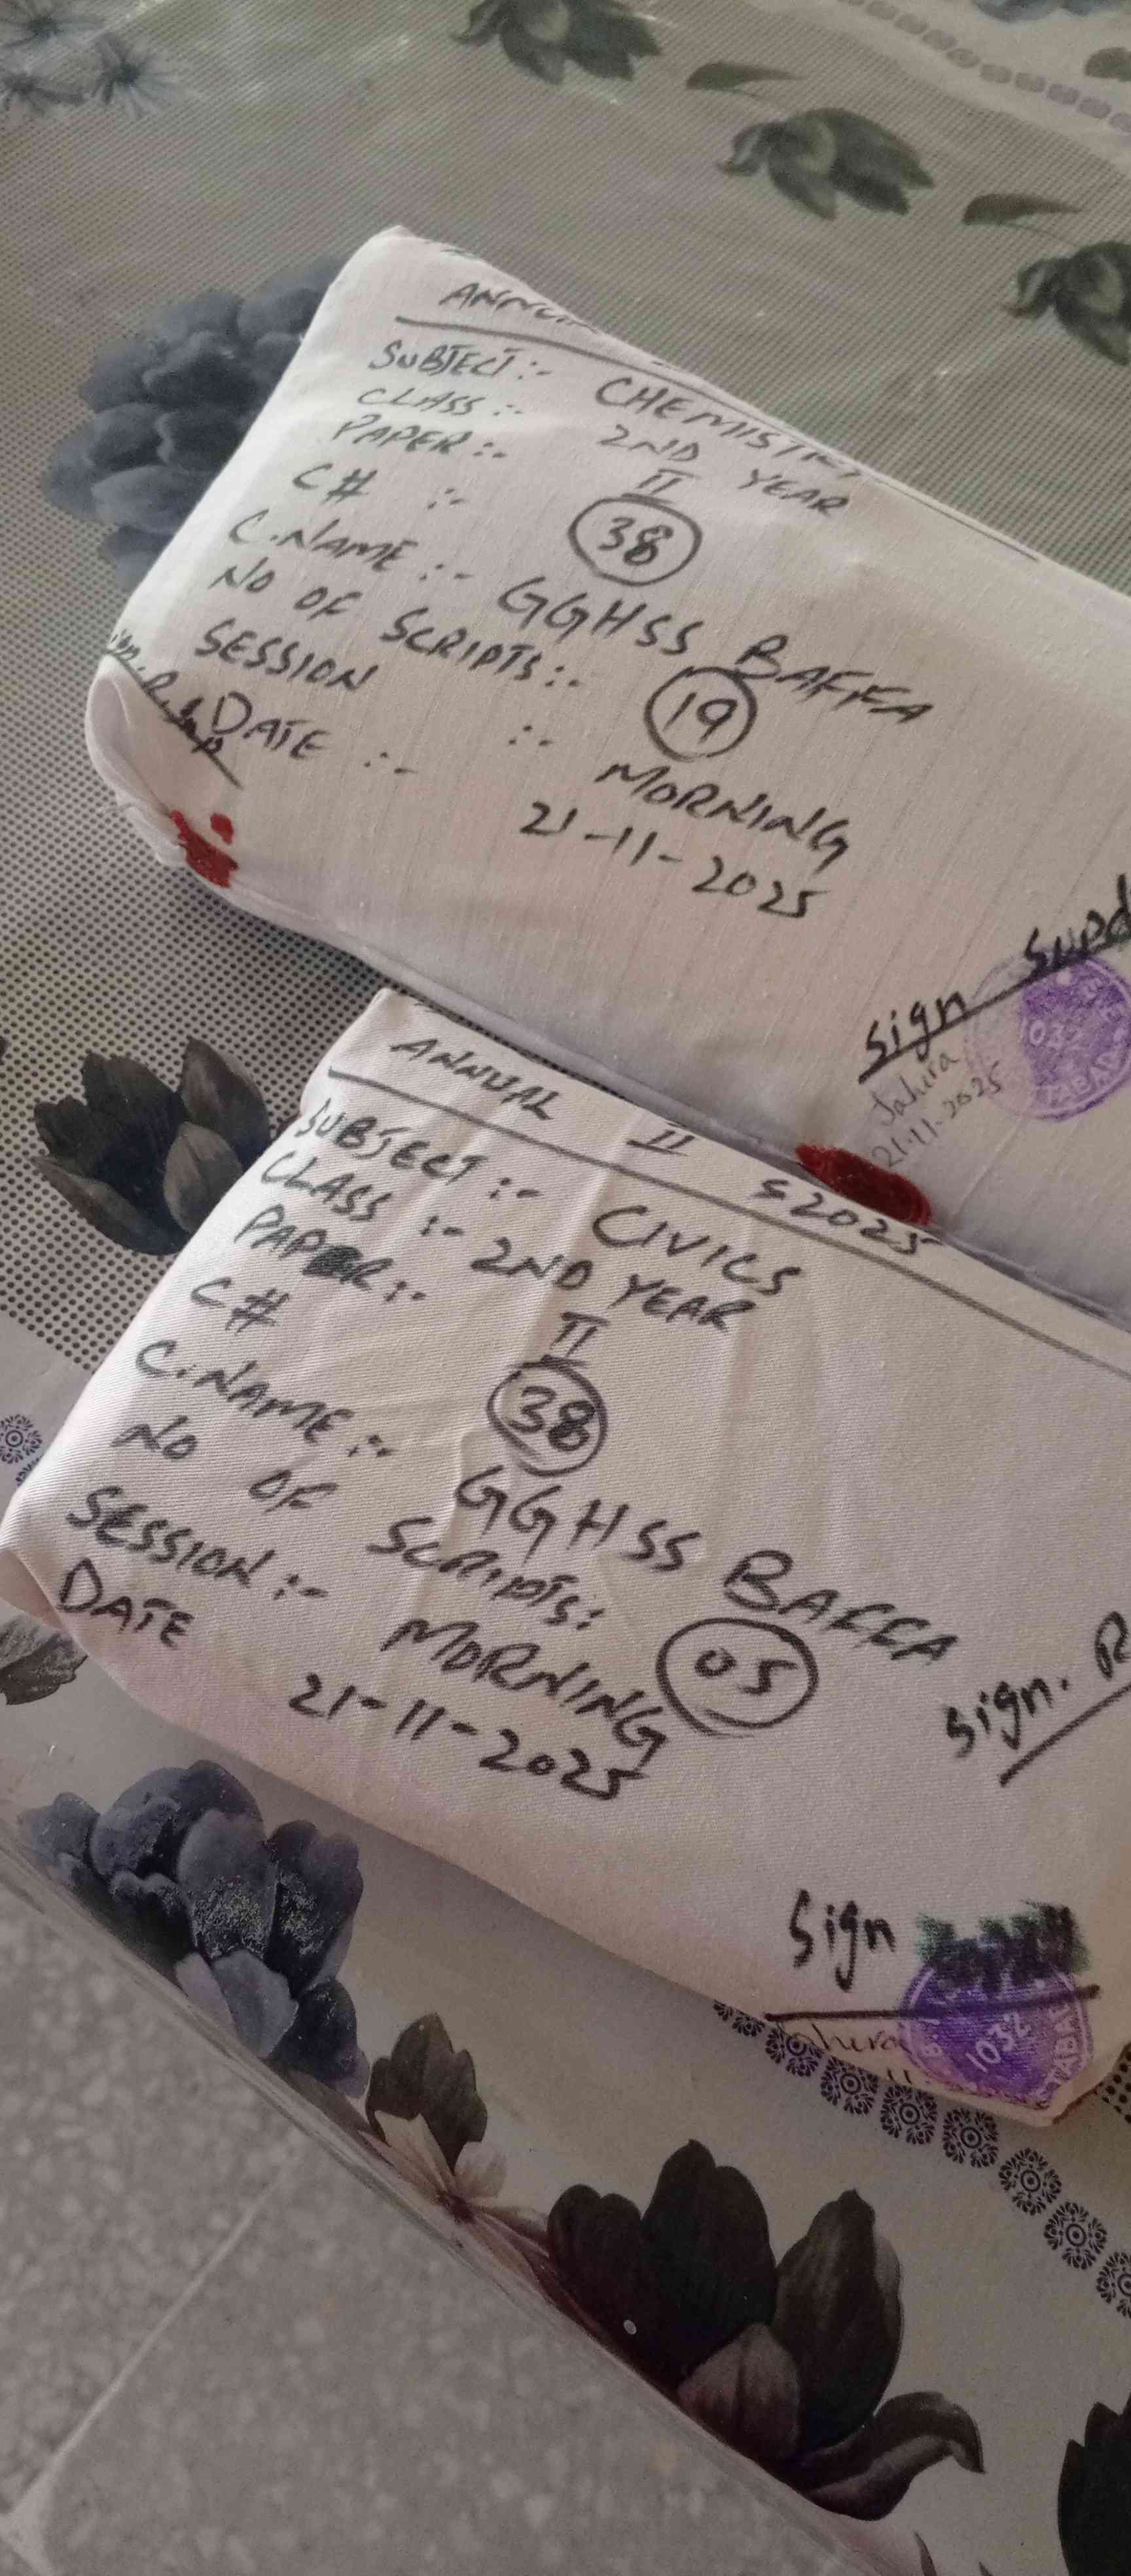 SUBJECT:- CHEMISTRY
CLASS:- 2ND YEAR
PAPER:- II
C# :- 38
C.NAME:- GGHSS BAFFA
NO OF SCRIPTS:- 19
SESSION :- MORNING
DATE :- 21-11-2025
Sign Supd
Tahira
21-11-2025
1032
ANNUAL II S2025
SUBJECT:- CIVICS
CLASS:- 2ND YEAR
PAPER:- II
C# 38
C.NAME:- GGHSS BAFFA
NO OF SCRIPTS: 05
SESSION:- MORNING
DATE 21-11-2025
Sign. R
Sign
1032